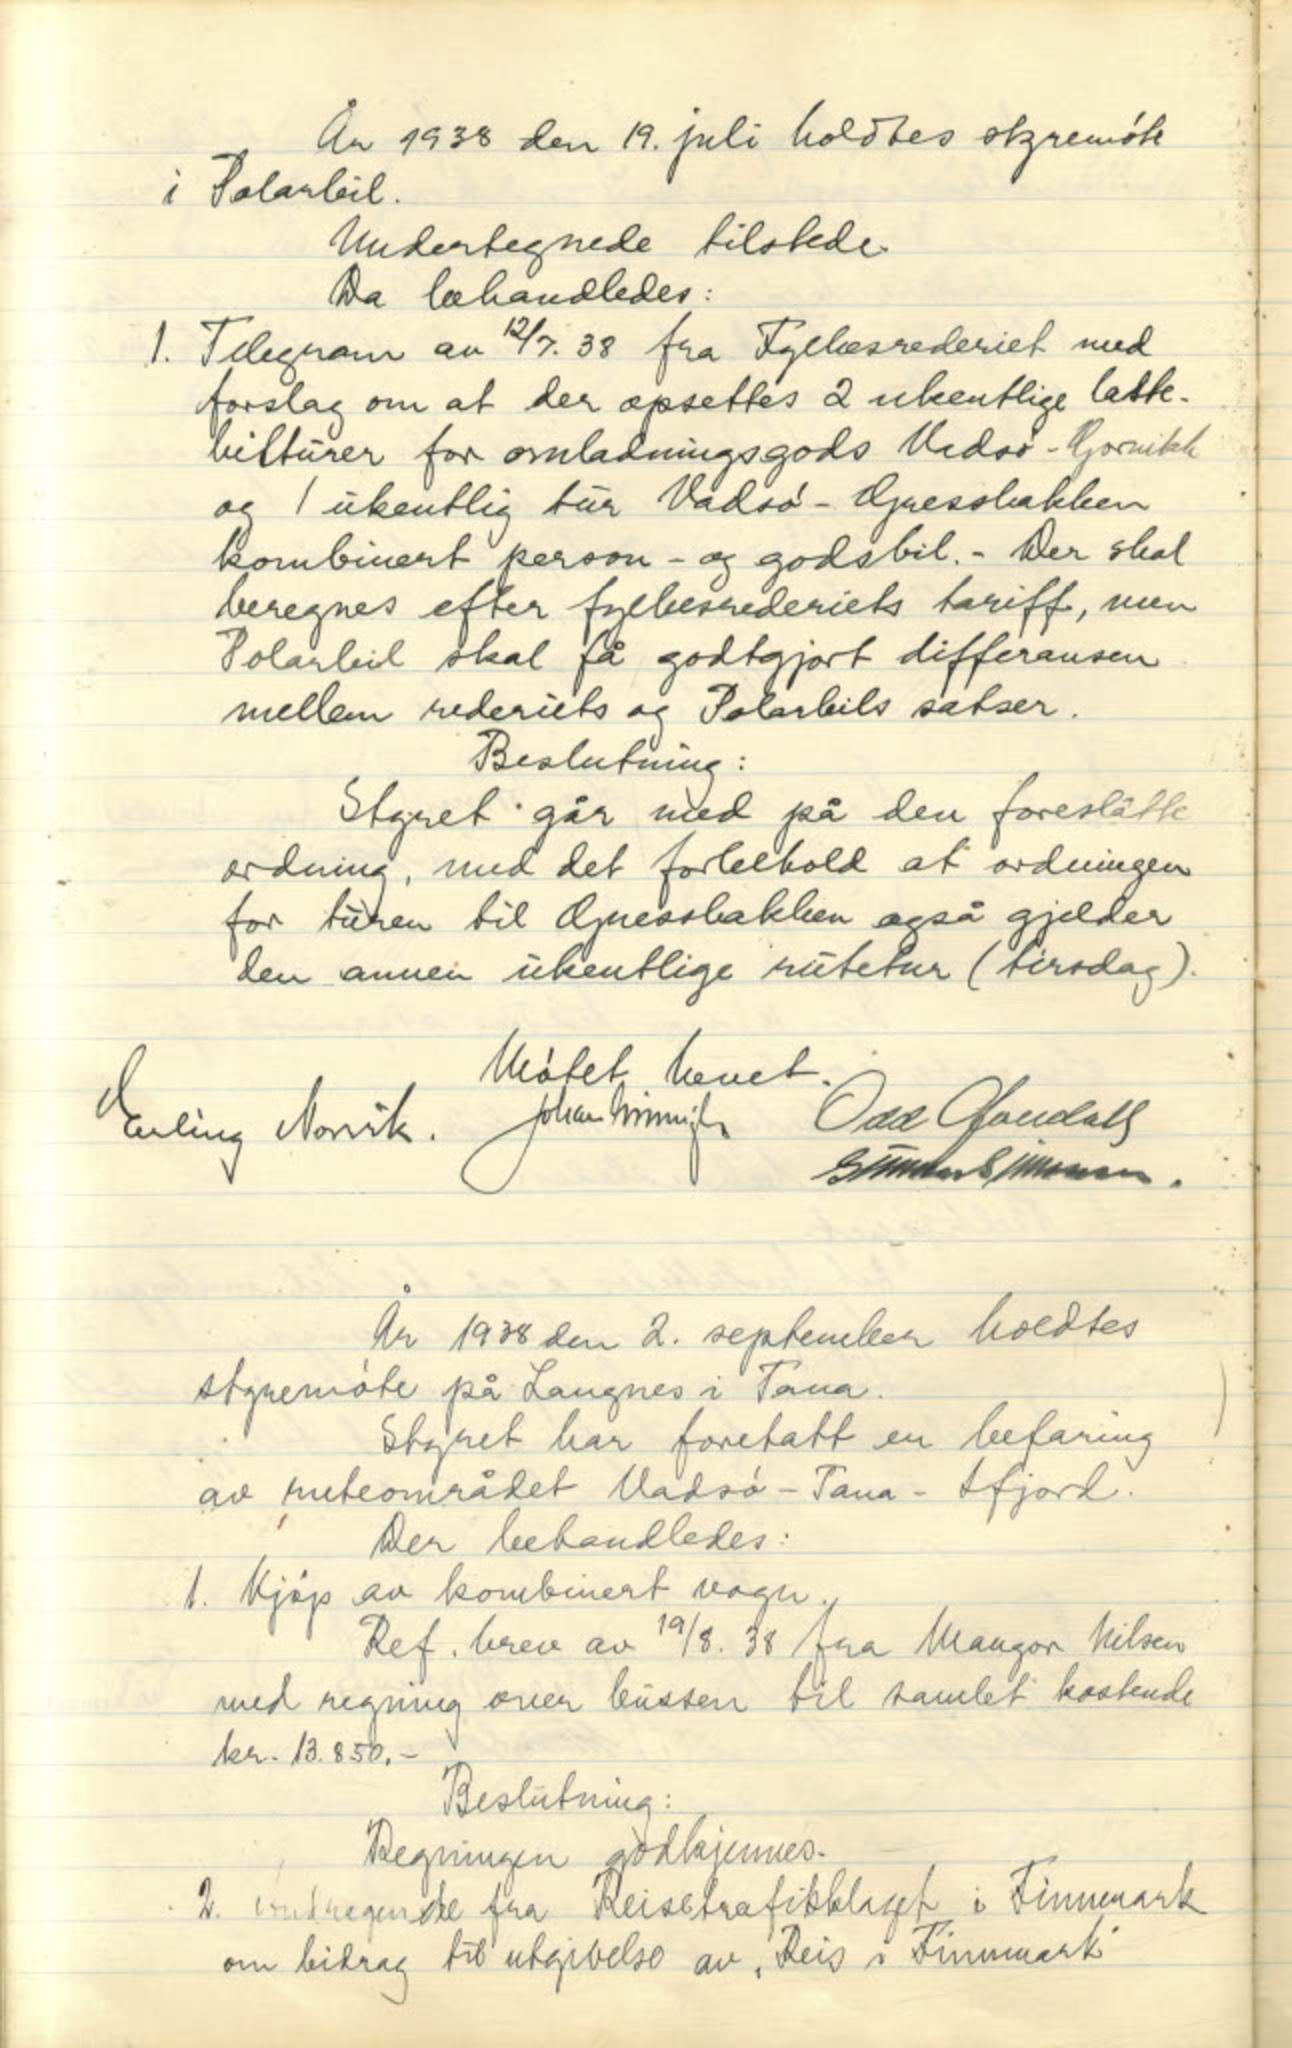 År 1938 den 19. juli holdtes styremöte
i Polarbil.
Undertegnede tilstede.
Da behandledes:
1. Telegram av 12/7. 38 fra Fylkesrederiet med
forslag om at der opsettes 2 ukentlige laste-
bilturer for omladningsgods Vadsö - Gornitak
og 1 ukentlig tur Vadsö - Gressbakken
kombinert person - og godsbil. - Der skal
beregnes efter fylkesrederiets tariff, men
Polarbil skal få godtgjort differansen
mellem rederiets og Polarbils satser.
Beslutning:
Styret går med på den foreslåtte
ordning, med det forbehold at ordningen
for turen til Gressbakken også gjelder
den annen ukentlige rutetur (tirsdag).
Mötet hevet.
Erling Norvik. Johan Odd
År 1938 den 2. september holdtes
styremöte på Langnes i Tana.
Styret har foretatt en befaring
av ruteområdet Vadsö - Tana - Ifjord.
Der behandledes:
1. Kjöp av kombinert vogn.
Ref. brev av 19/8. 38 fra Mangor Nilsen
med regning over bussen til samlet kostende
kr. 13.850.-
Beslutning:
Regningen godkjennes.
2. Andragende fra Reisetrafikklaget i Finnmark
om bidrag til utgivelse av "Reis i Finnmark"